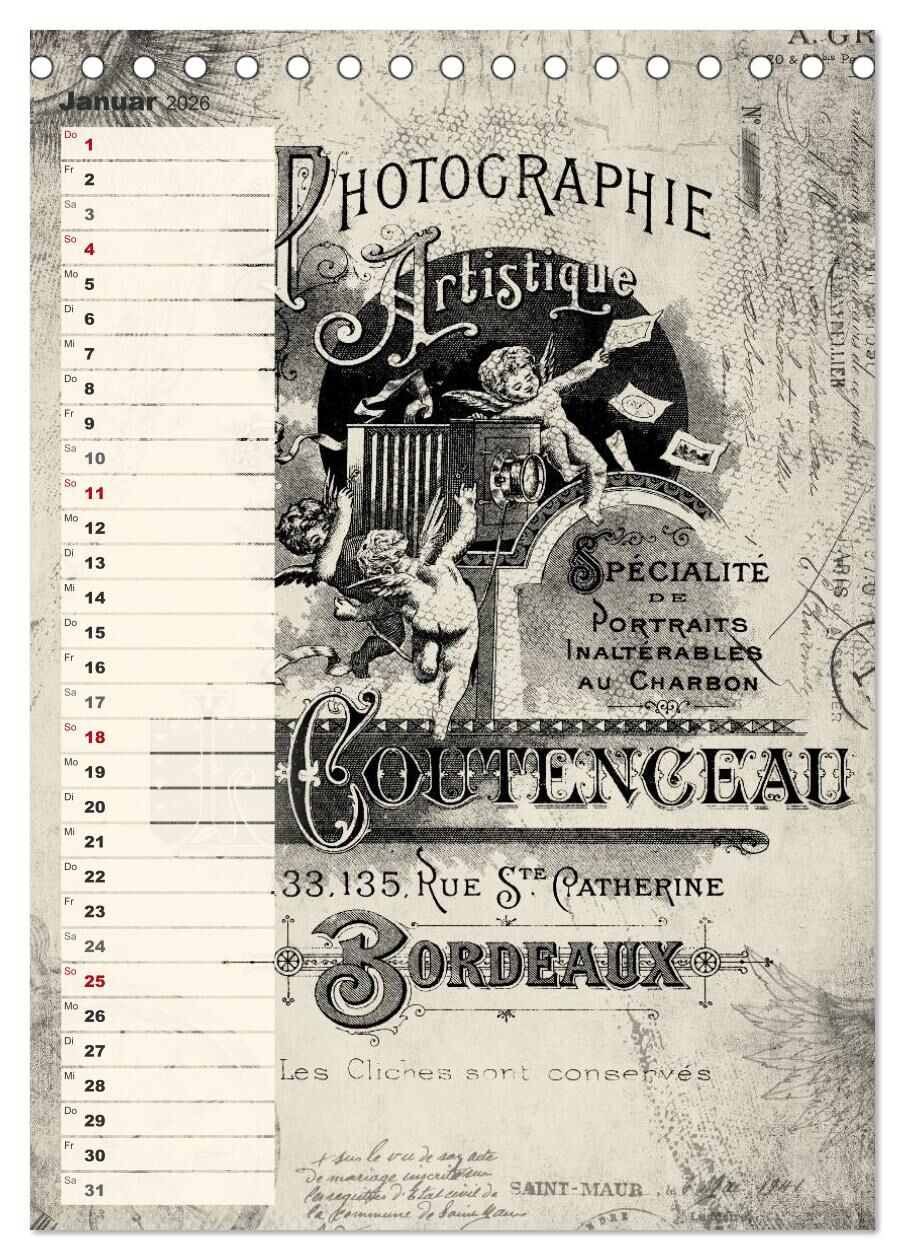 A. GR
Januar 2026
Do 1
Fr 2
Sa 3
So 4
Mo 5
Di 6
Mi 7
Do 8
Fr 9
Sa 10
So 11
Mo 12
Di 13
Mi 14
Do 15
Fr 16
Sa 17
So 18
Mo 19
Di 20
Mi 21
Do 22
Fr 23
Sa 24
So 25
Mo 26
Di 27
Mi 28
Do 29
Fr 30
Sa 31
No
PHOTOGRAPHIE
Artistique
SPÉCIALITÉ
DE
PORTRAITS
INALTÉRABLES
AU CHARBON
COUTENCEAU
33, 135, RUE STE CATHERINE
BORDEAUX
Les Cliches sont conservés
+ sur le vu de
de mariage
d'Etat civil de
la Commune de Saint Maur
SAINT-MAUR, le 1941